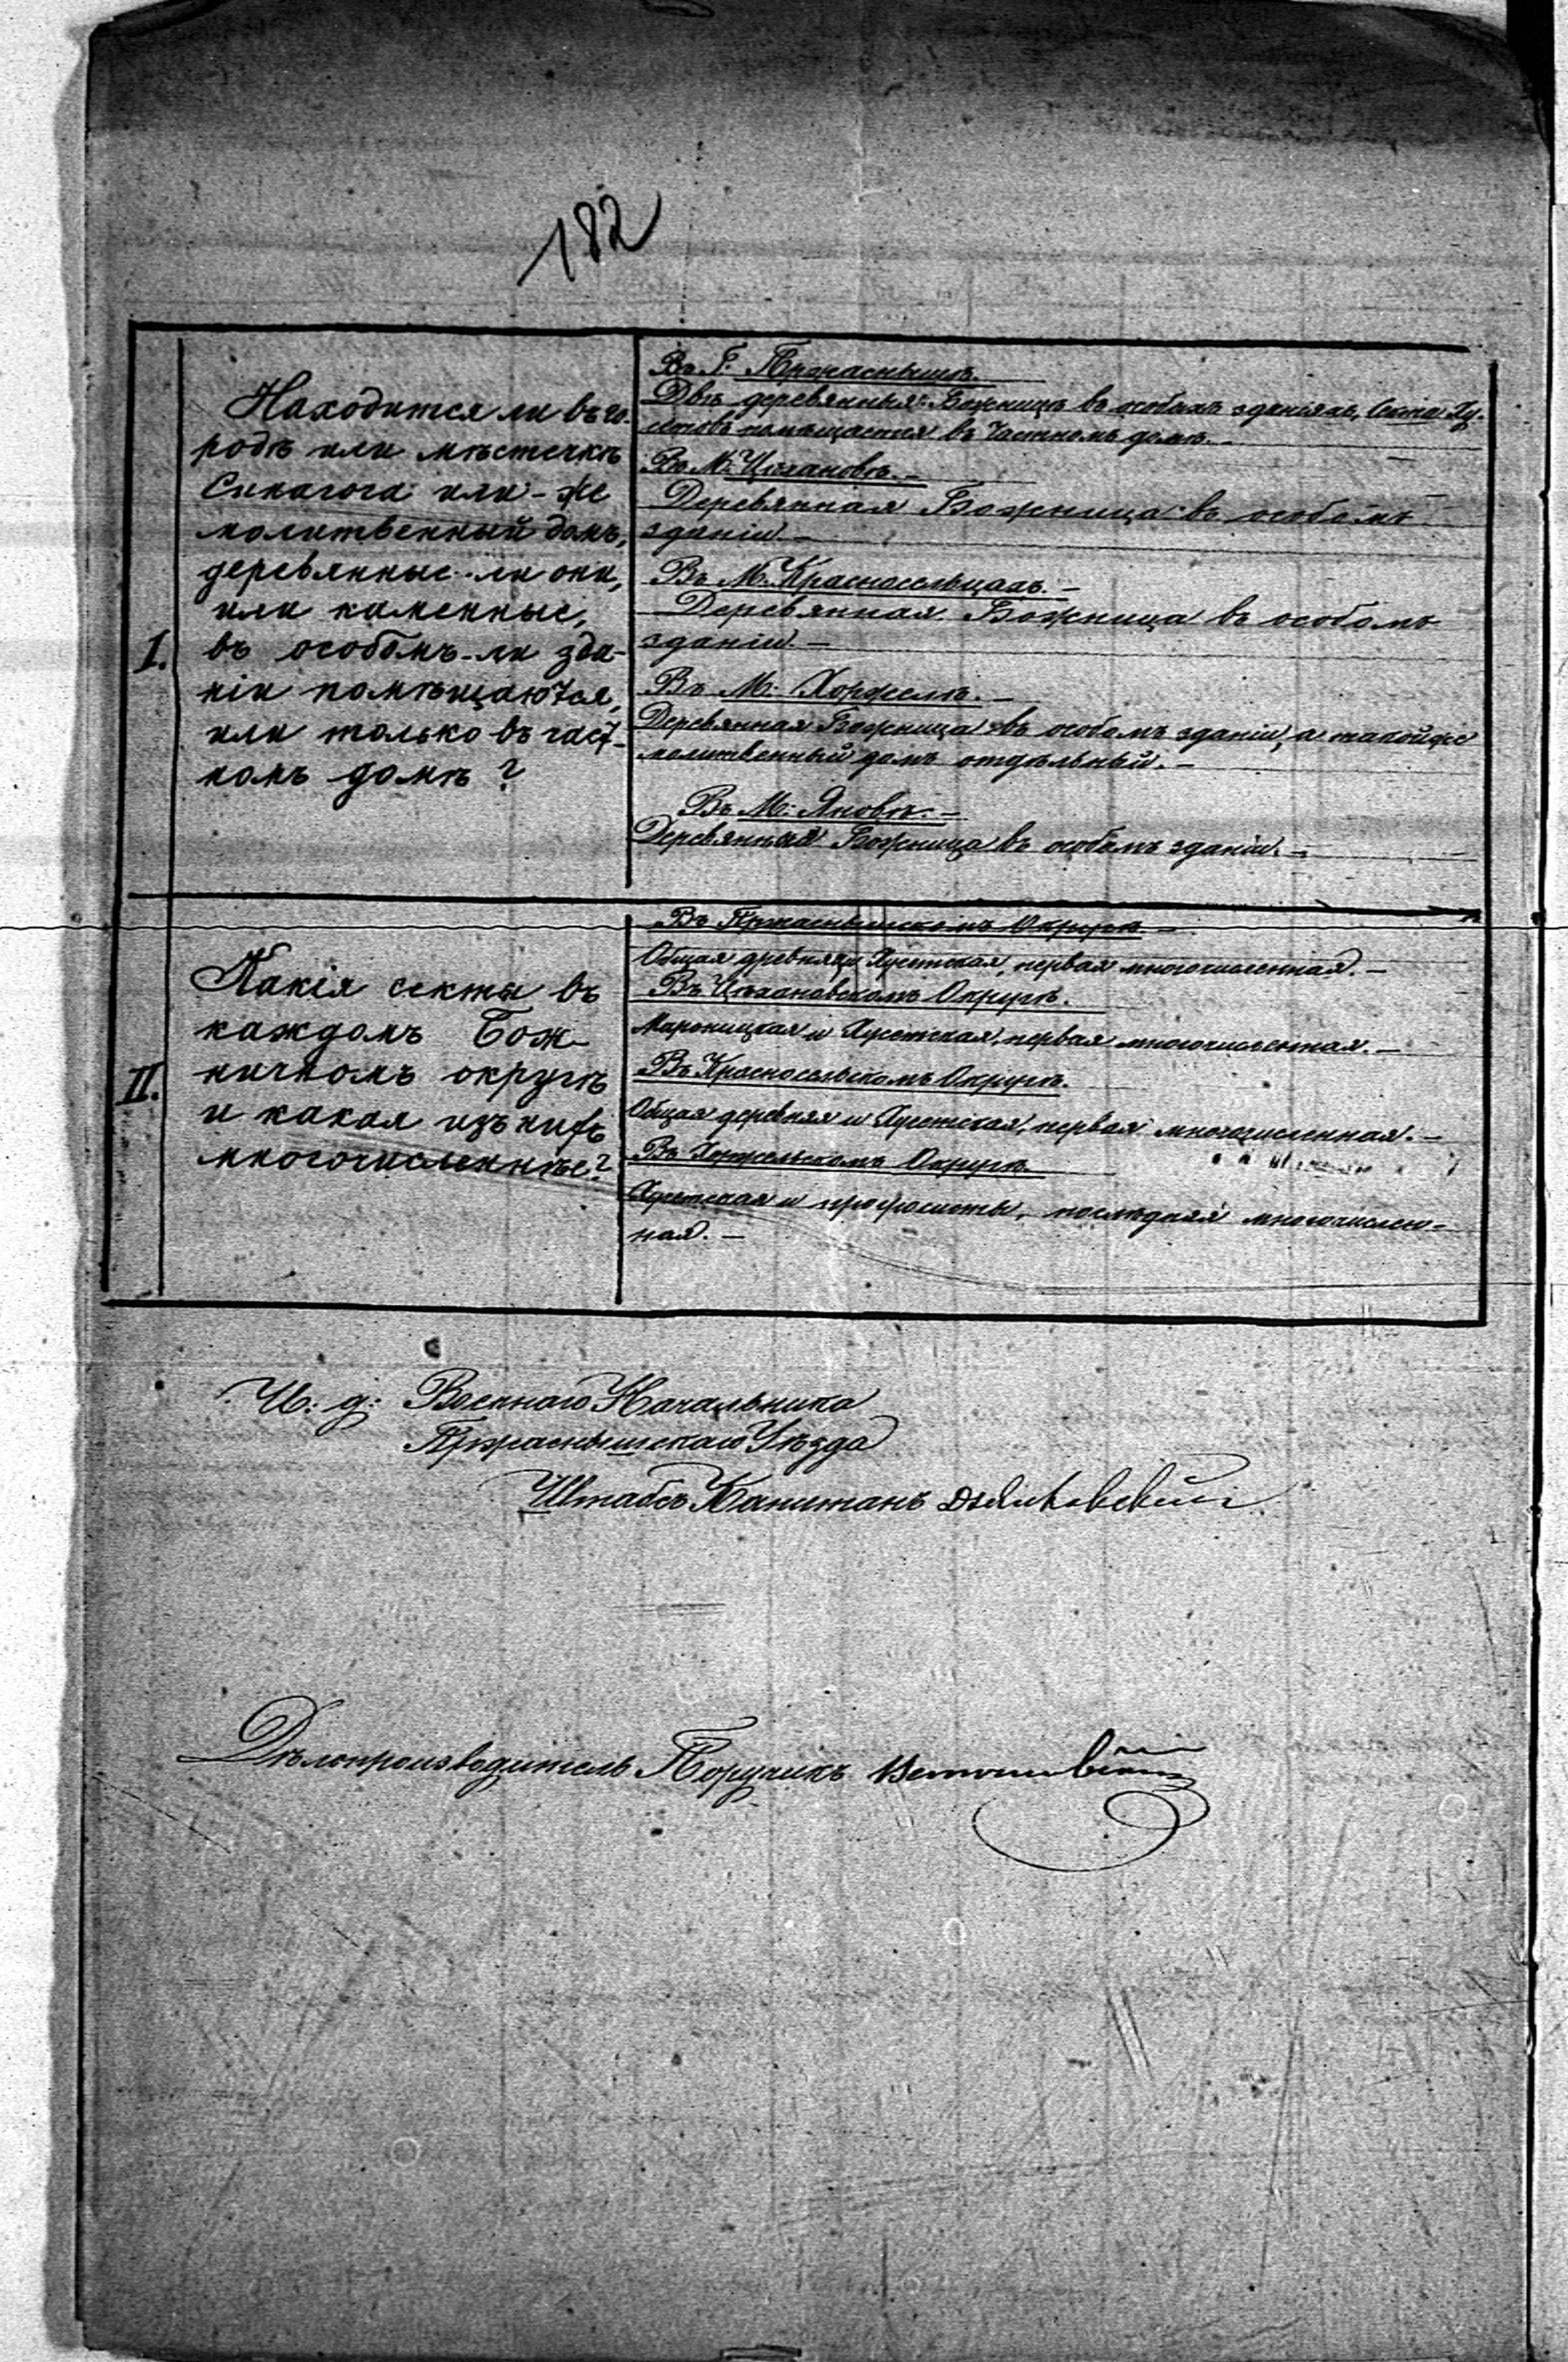 182
I.
Находится ли въ го-
родѣ или мѣстечкѣ
Синагога или-же
молитвенный домъ,
деревянные-ли они,
или каменные,
въ особомъ-ли зда-
ніи помѣщаются,
или только въ част-
номъ домѣ?
Въ Г: Пржаснышѣ.
Двѣ деревянныя Божницы въ особыхъ зданіяхъ, Секта Ху-
сетовъ помѣщается въ частномъ домѣ. —
Въ М: Цѣхановѣ. —
Деревянная Божница въ особомъ
зданіи —
Въ М: Красносельцахъ. —
Деревянная Божница въ особомъ
зданіи. —
Въ М: Хоржеляхъ. —
Деревянная Божница въ особомъ зданіи, а такойже
молитвенный домъ отдѣльный. —
Въ М: Яновѣ. —
Деревянная Божница въ особомъ зданіи. —
II.
Какія секты въ
каждомъ Бож-
ничномъ округѣ
и какая изъ нихъ
многочисленнѣе?
Въ Пржаснышскомъ Округѣ. —
Общая древняя и Хусетская, первая многочисленная. —
Въ Цѣхановскомъ Округѣ.
и Хусетская, первая многочисленная. —
Въ Красносельскомъ Округѣ.
Общая деревняя и Хусетская, первая многочисленная. —
Въ Хоржельскомъ Округѣ
Хусетская и послѣдняя многочислен-
ная. —
И: д: Военнаго Начальника
Пржаснышскаго Уѣзда
Штабсъ Капитанъ
Дѣлопроизводитель Поручикъ